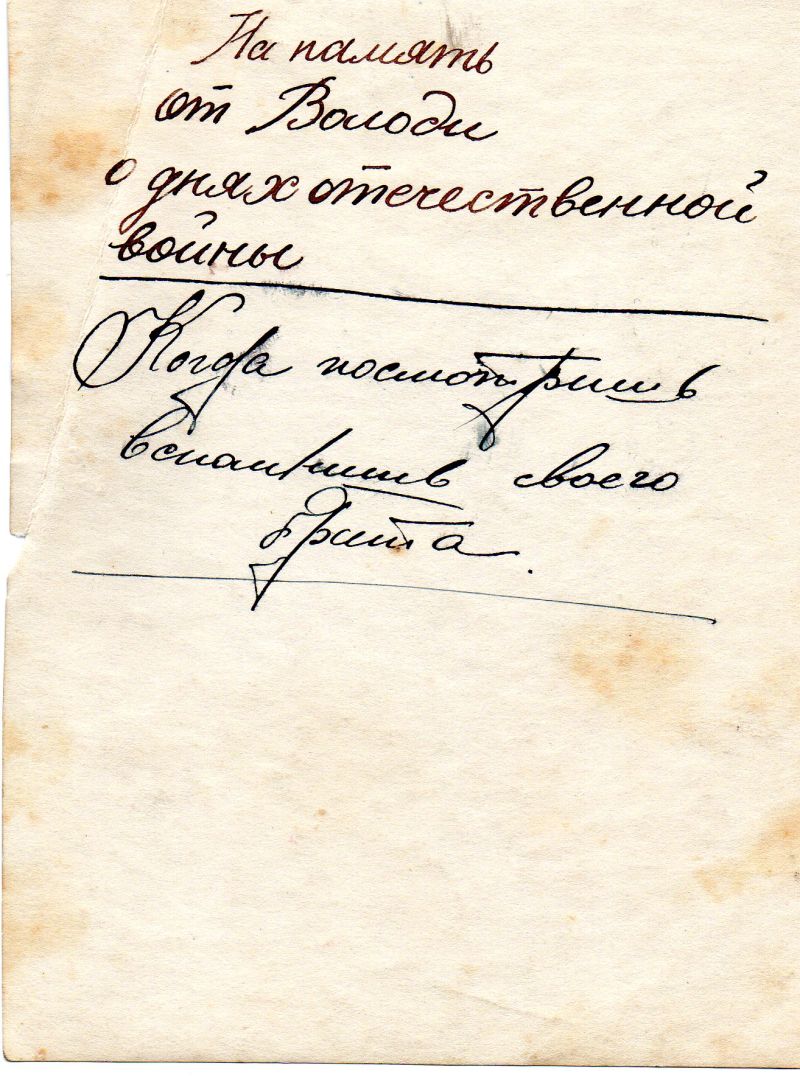 На память
от Володи
о днях отечественной
войны
Когда посмотришь
вспомнишь своего
брата.